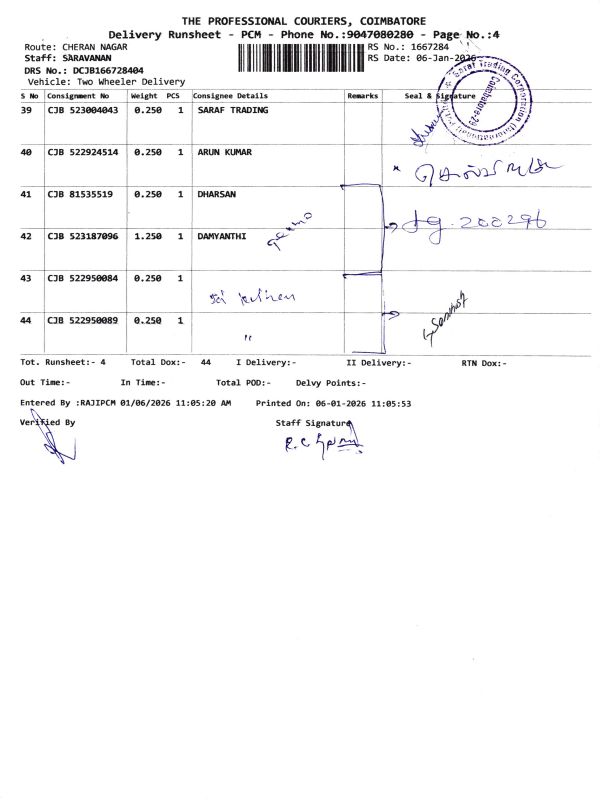 THE PROFESSIONAL COURIERS, COIMBATORE
Delivery Runsheet - PCM - Phone No.:9047080280 - Page No.:4
Route: CHERAN NAGAR RS No.: 1667284
Staff: SARAVANAN RS Date: 06-Jan-2026
DRS No.: DCJB166728404
Vehicle: Two Wheeler Delivery
S No Consignment No Weight PCS Consignee Details Remarks Seal & Signature
39 CJB 523004043 0.250 1 SARAF TRADING
Saraf Trading Corporation
Coimbatore-29
40 CJB 522924514 0.250 1 ARUN KUMAR
41 CJB 81535519 0.250 1 DHARSAN
200296
42 CJB 523187096 1.250 1 DAMYANTHI
43 CJB 522950084 0.250 1
44 CJB 522950089 0.250 1
"
Tot. Runsheet:- 4 Total Dox:- 44 I Delivery:- II Delivery:- RTN Dox:-
Out Time:- In Time:- Total POD:- Delvy Points:-
Entered By :RAJIPCM 01/06/2026 11:05:20 AM Printed On: 06-01-2026 11:05:53
Verified By Staff Signature